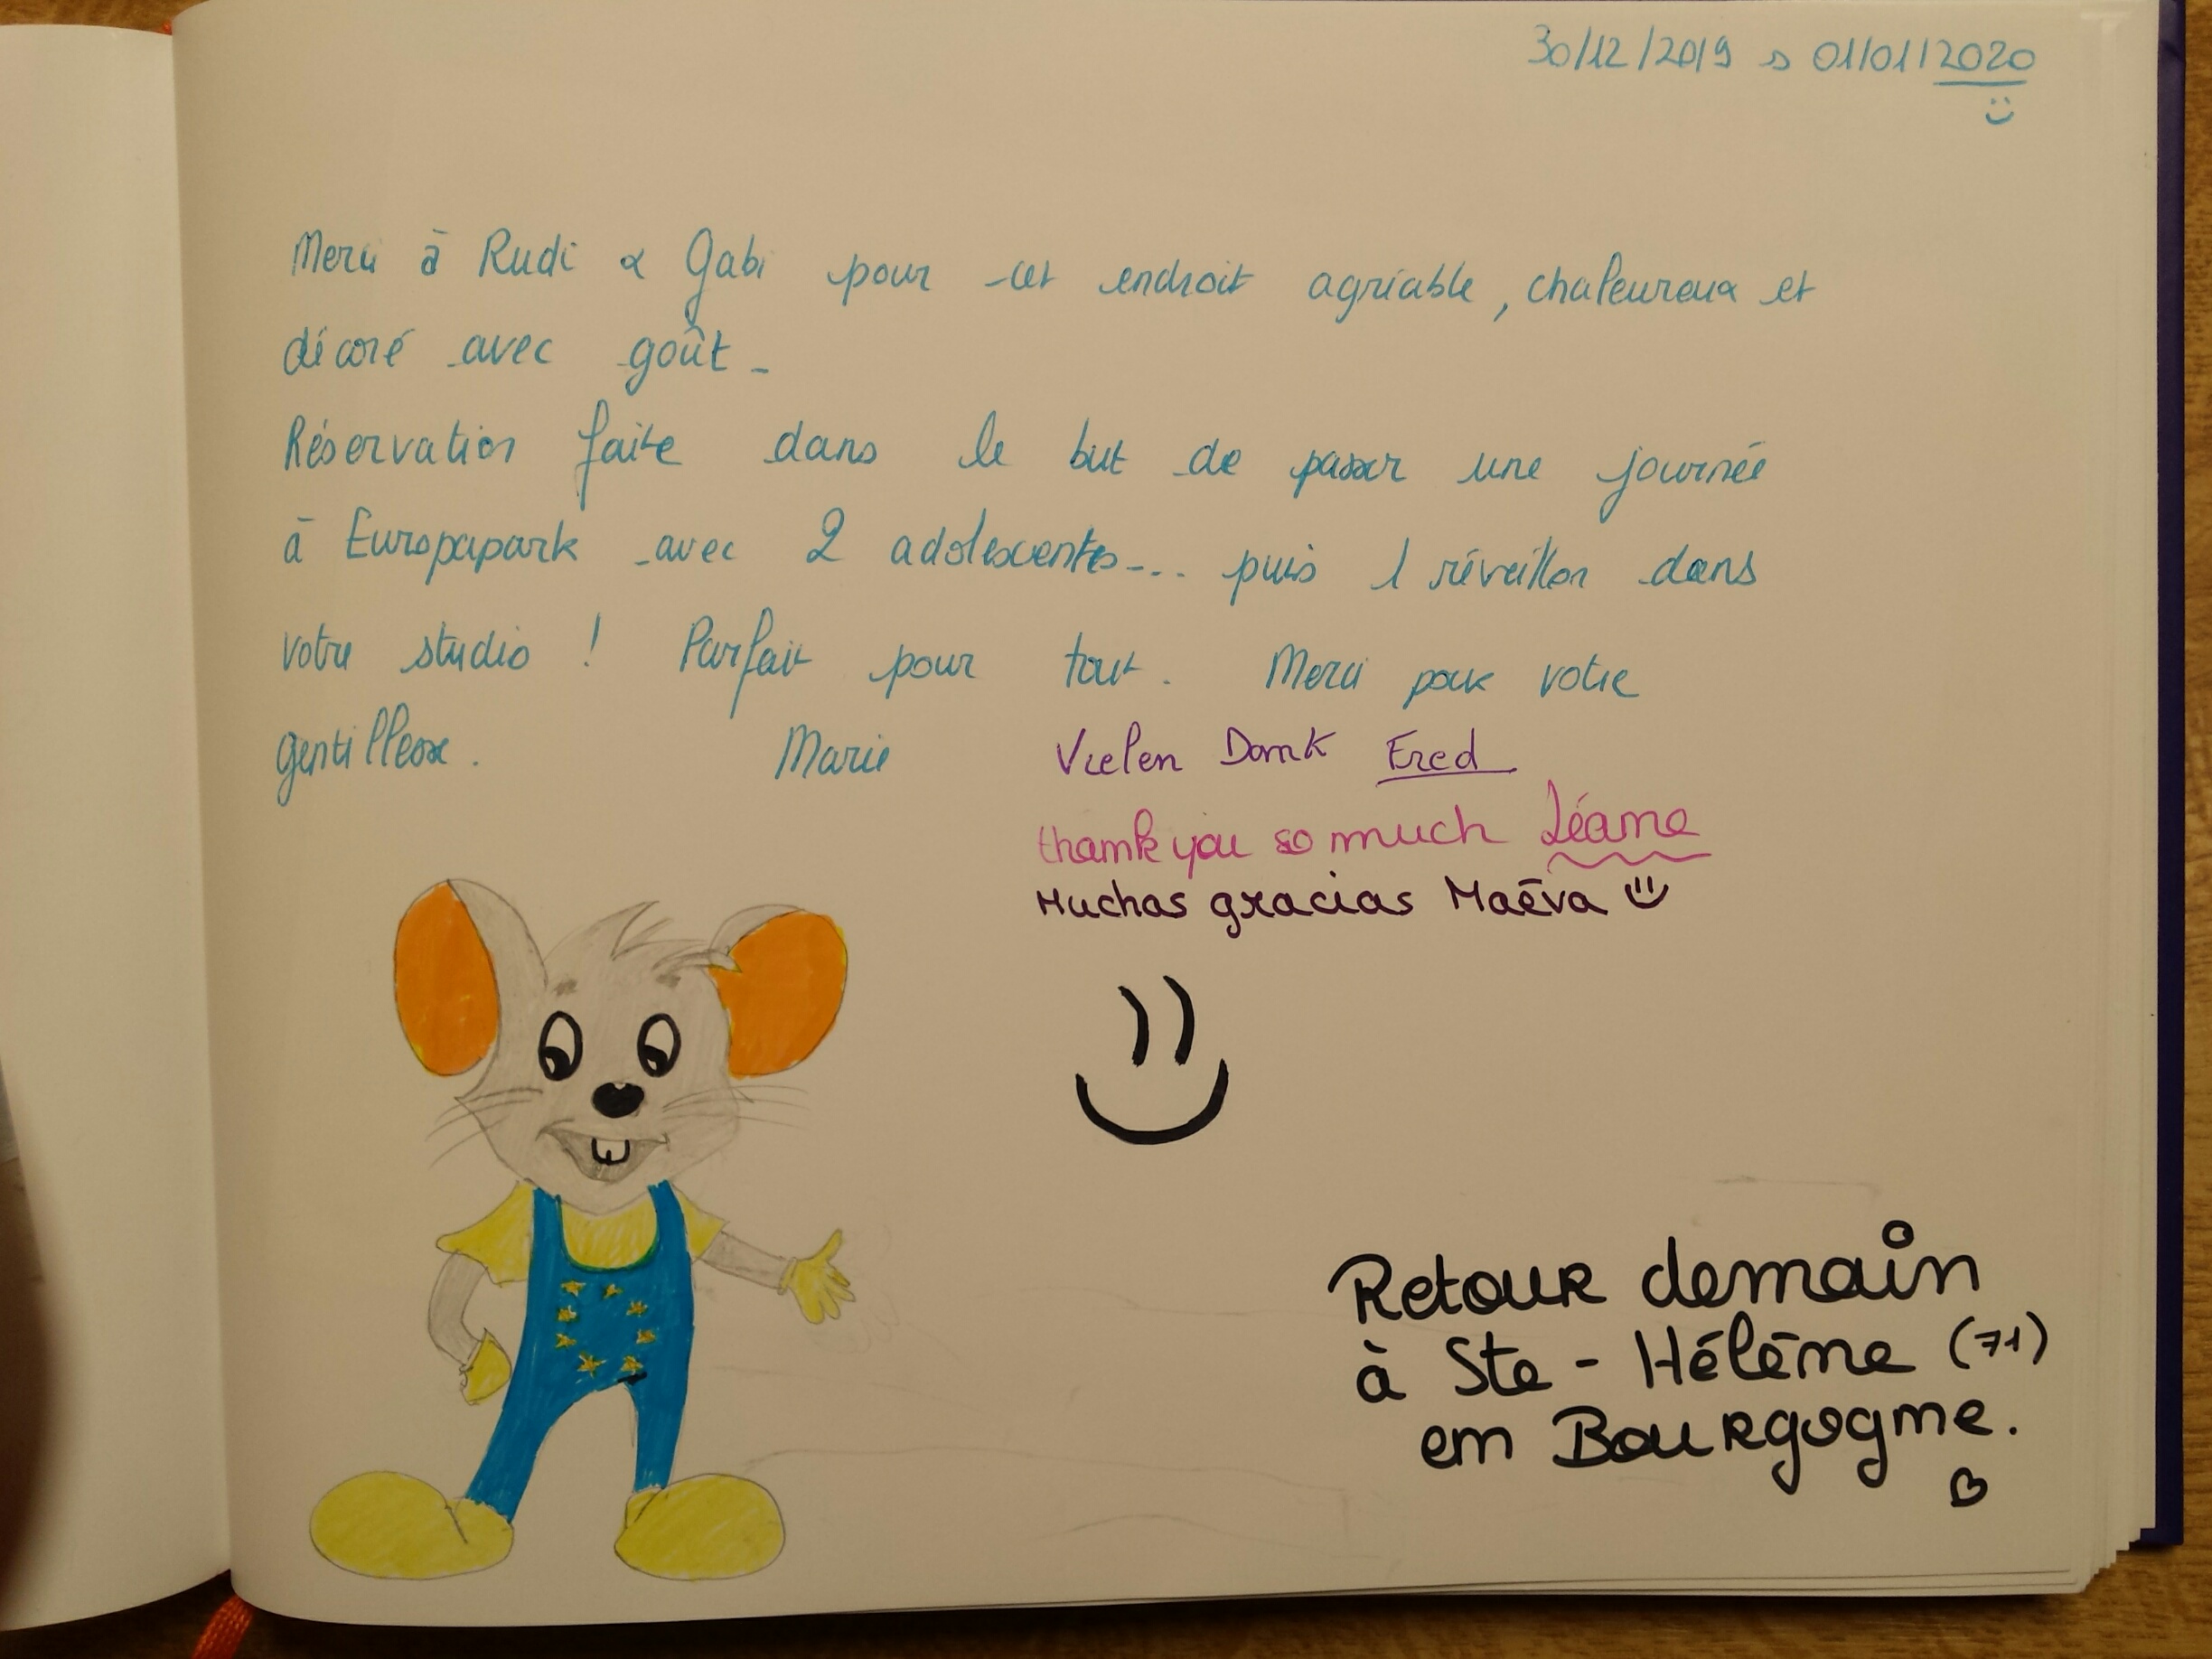 30/12/2019 → 01/01/2020
Merci à Rudi & Gabi pour cet endroit agréable, chaleureux et
décoré avec goût.
Réservation faite dans le but de passer une journée
à Europapark avec 2 adolescentes... puis 1 réveillon dans
votre studio ! Parfait pour tout. Merci pour votre
gentillesse. Marie
Vielen Dank Fred
thank you so much Léane
Muchas gracias Maéva
Retour demain
à Ste-Hélène (71)
en Bourgogne.